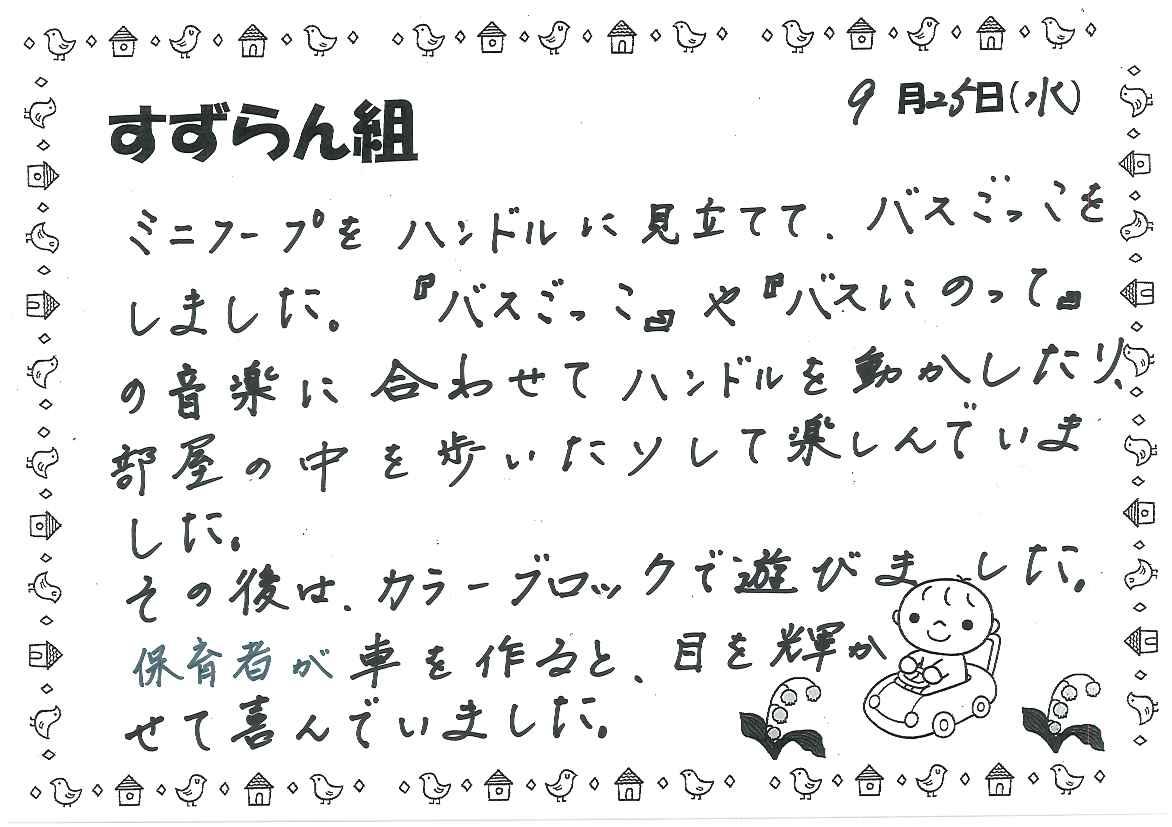 9月25日(水)
すずらん組
ミニフープをハンドルに見立てて、バスごっこを
しました。『バスごっこ』や『バスにのって』
の音楽に合わせてハンドルを動かしたり、
部屋の中を歩いたりして楽しんでいま
した。
その後は、カラーブロックで遊びました。
保育者が車を作ると、目を輝か
せて喜んでいました。